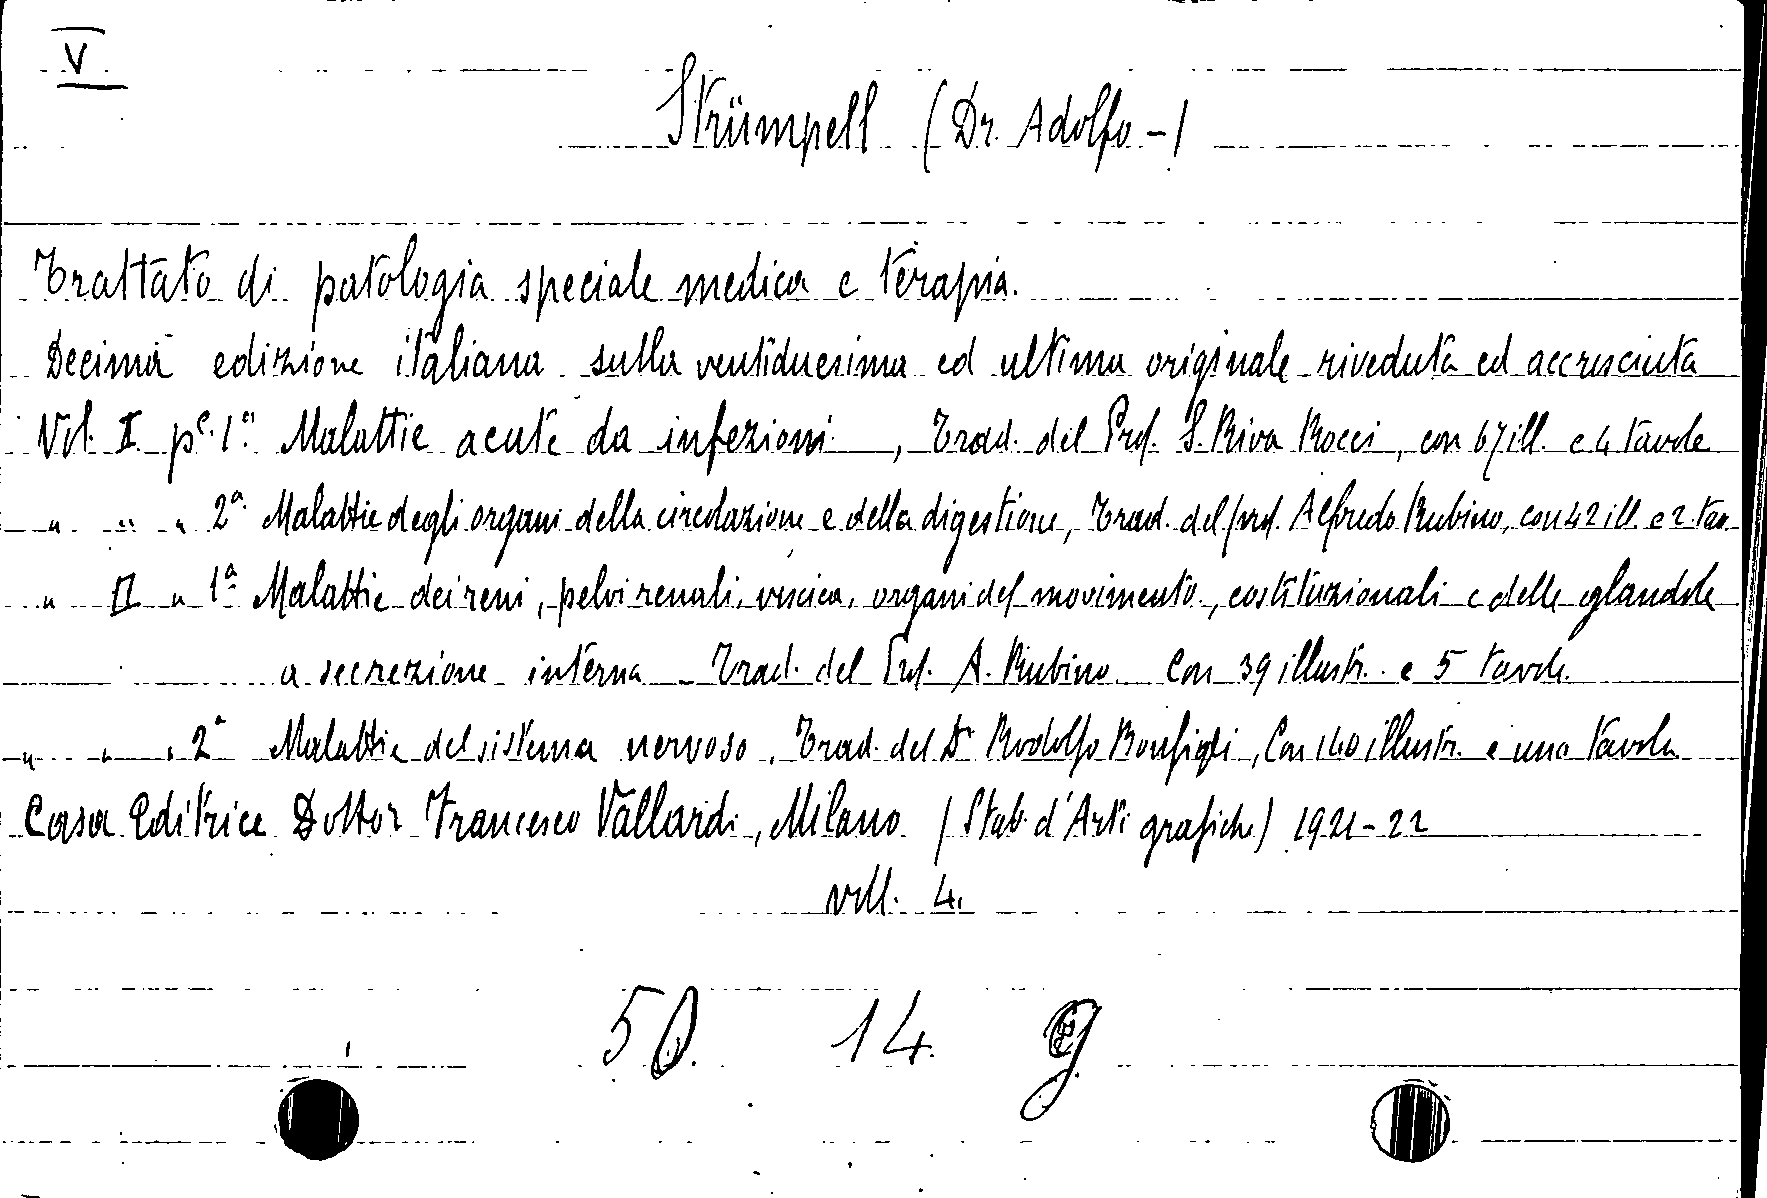 V
Strümpell (Dr. Adolfo -)
Trattato di patologia speciale medica e terapia.
Decima edizione italiana sulla ventiduesima ed ultima originale riveduta ed accresciuta
Vol. I pe. 1a. Malattie acute da infezioni, Trad. del Prof. S. Riva Rocci, con 67 ill. e 4 tavole
" " " 2a. Malattie degli organi della circolazione e della digestione, Trad. del prof. Alfredo Rubino, con 42 ill. e 2 tav.
" II " 1a Malattie dei reni, pelvi renali, vescica, organi del movimento, costituzionali e delle glandole
a secrezione interna - Trad. del Prof. A. Rubino Con 39 illustr. e 5 tavole.
" " " 2a Malattie del sistema nervoso, Trad. del Dr Rodolfo Bonfigli, Con 140 illustr. e una tavola
Casa Editrice Dottor Francesco Vallardi, Milano (Stab. d'Arti grafiche) 1921-22
voll. 4.
50. 14.